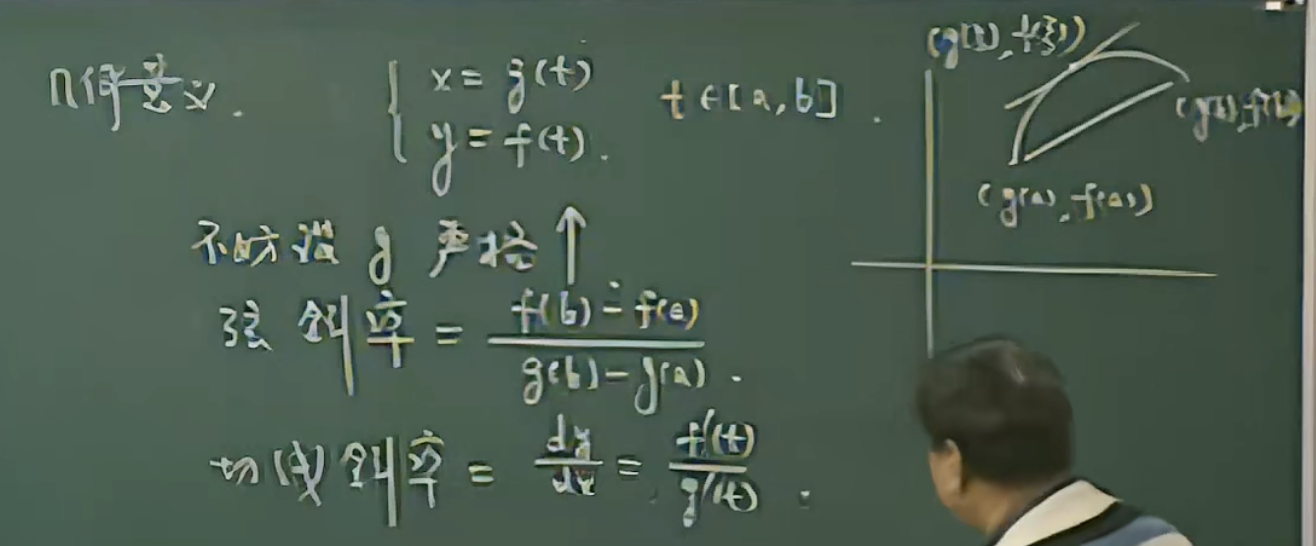 几何意义.
{ x = g(t)
y = f(t).
t∈[a,b].
不妨设 g 严格 ↑
弦斜率 = f(b) - f(a) / g(b) - g(a).
切线斜率 = dy/dx = f'(t)/g'(t).
(g(ξ), f(ξ))
(g(b), f(b))
(g(a), f(a))